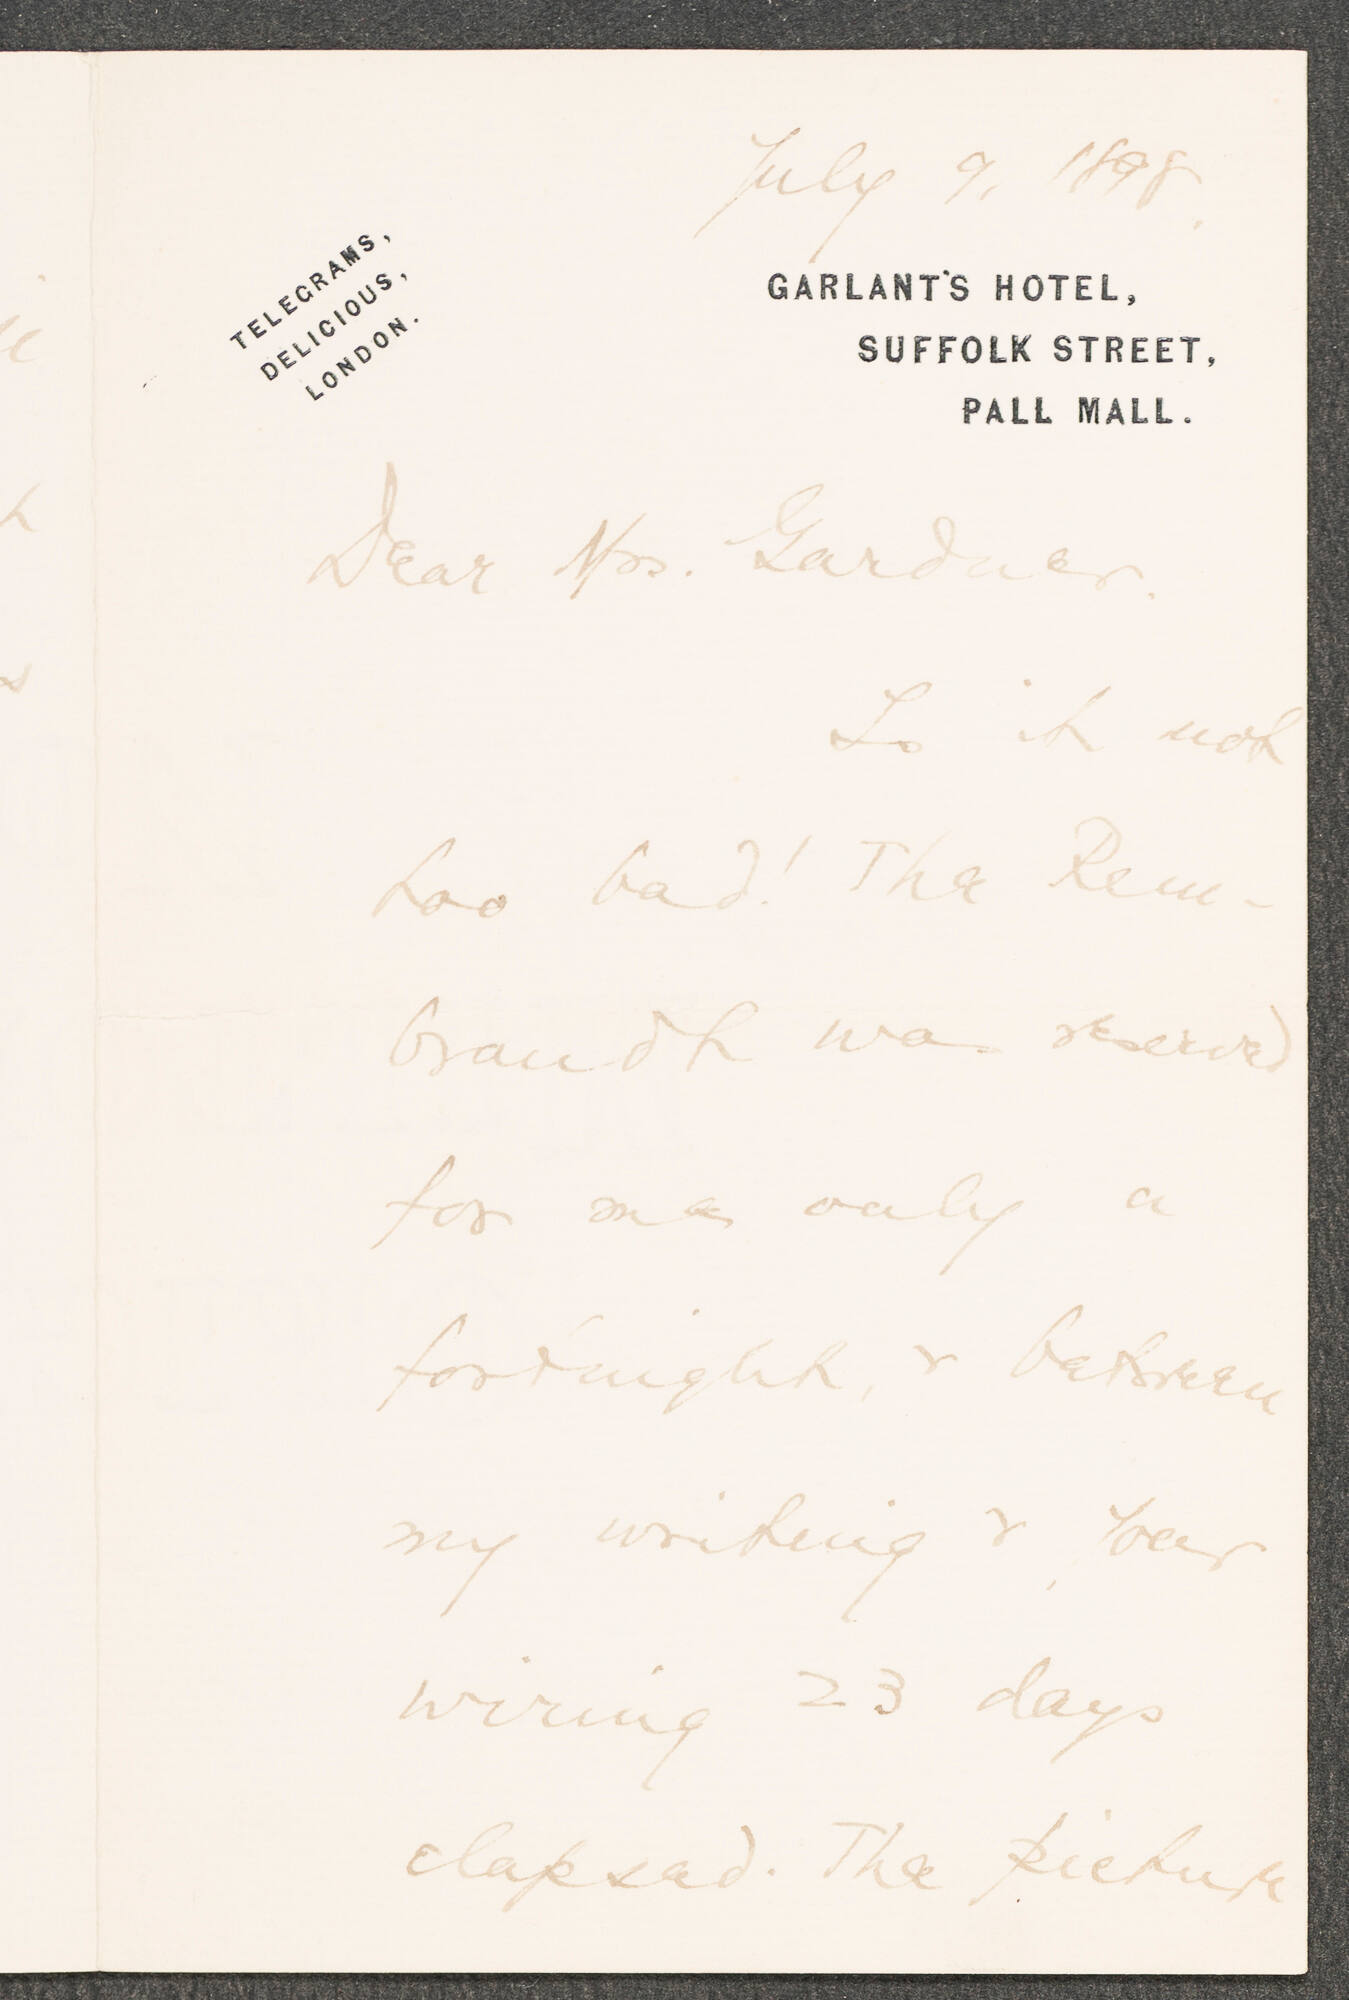 July 9, 1898.
TELEGRAMS,
DELICIOUS,
LONDON.
GARLANT'S HOTEL,
SUFFOLK STREET,
PALL MALL.
Dear Mrs. Gardner.
Is it not
too bad! The Rem-
brandt was reserved
for me only a
fortnight, & between
my writing & your
wiring 23 days
elapsed. The picture